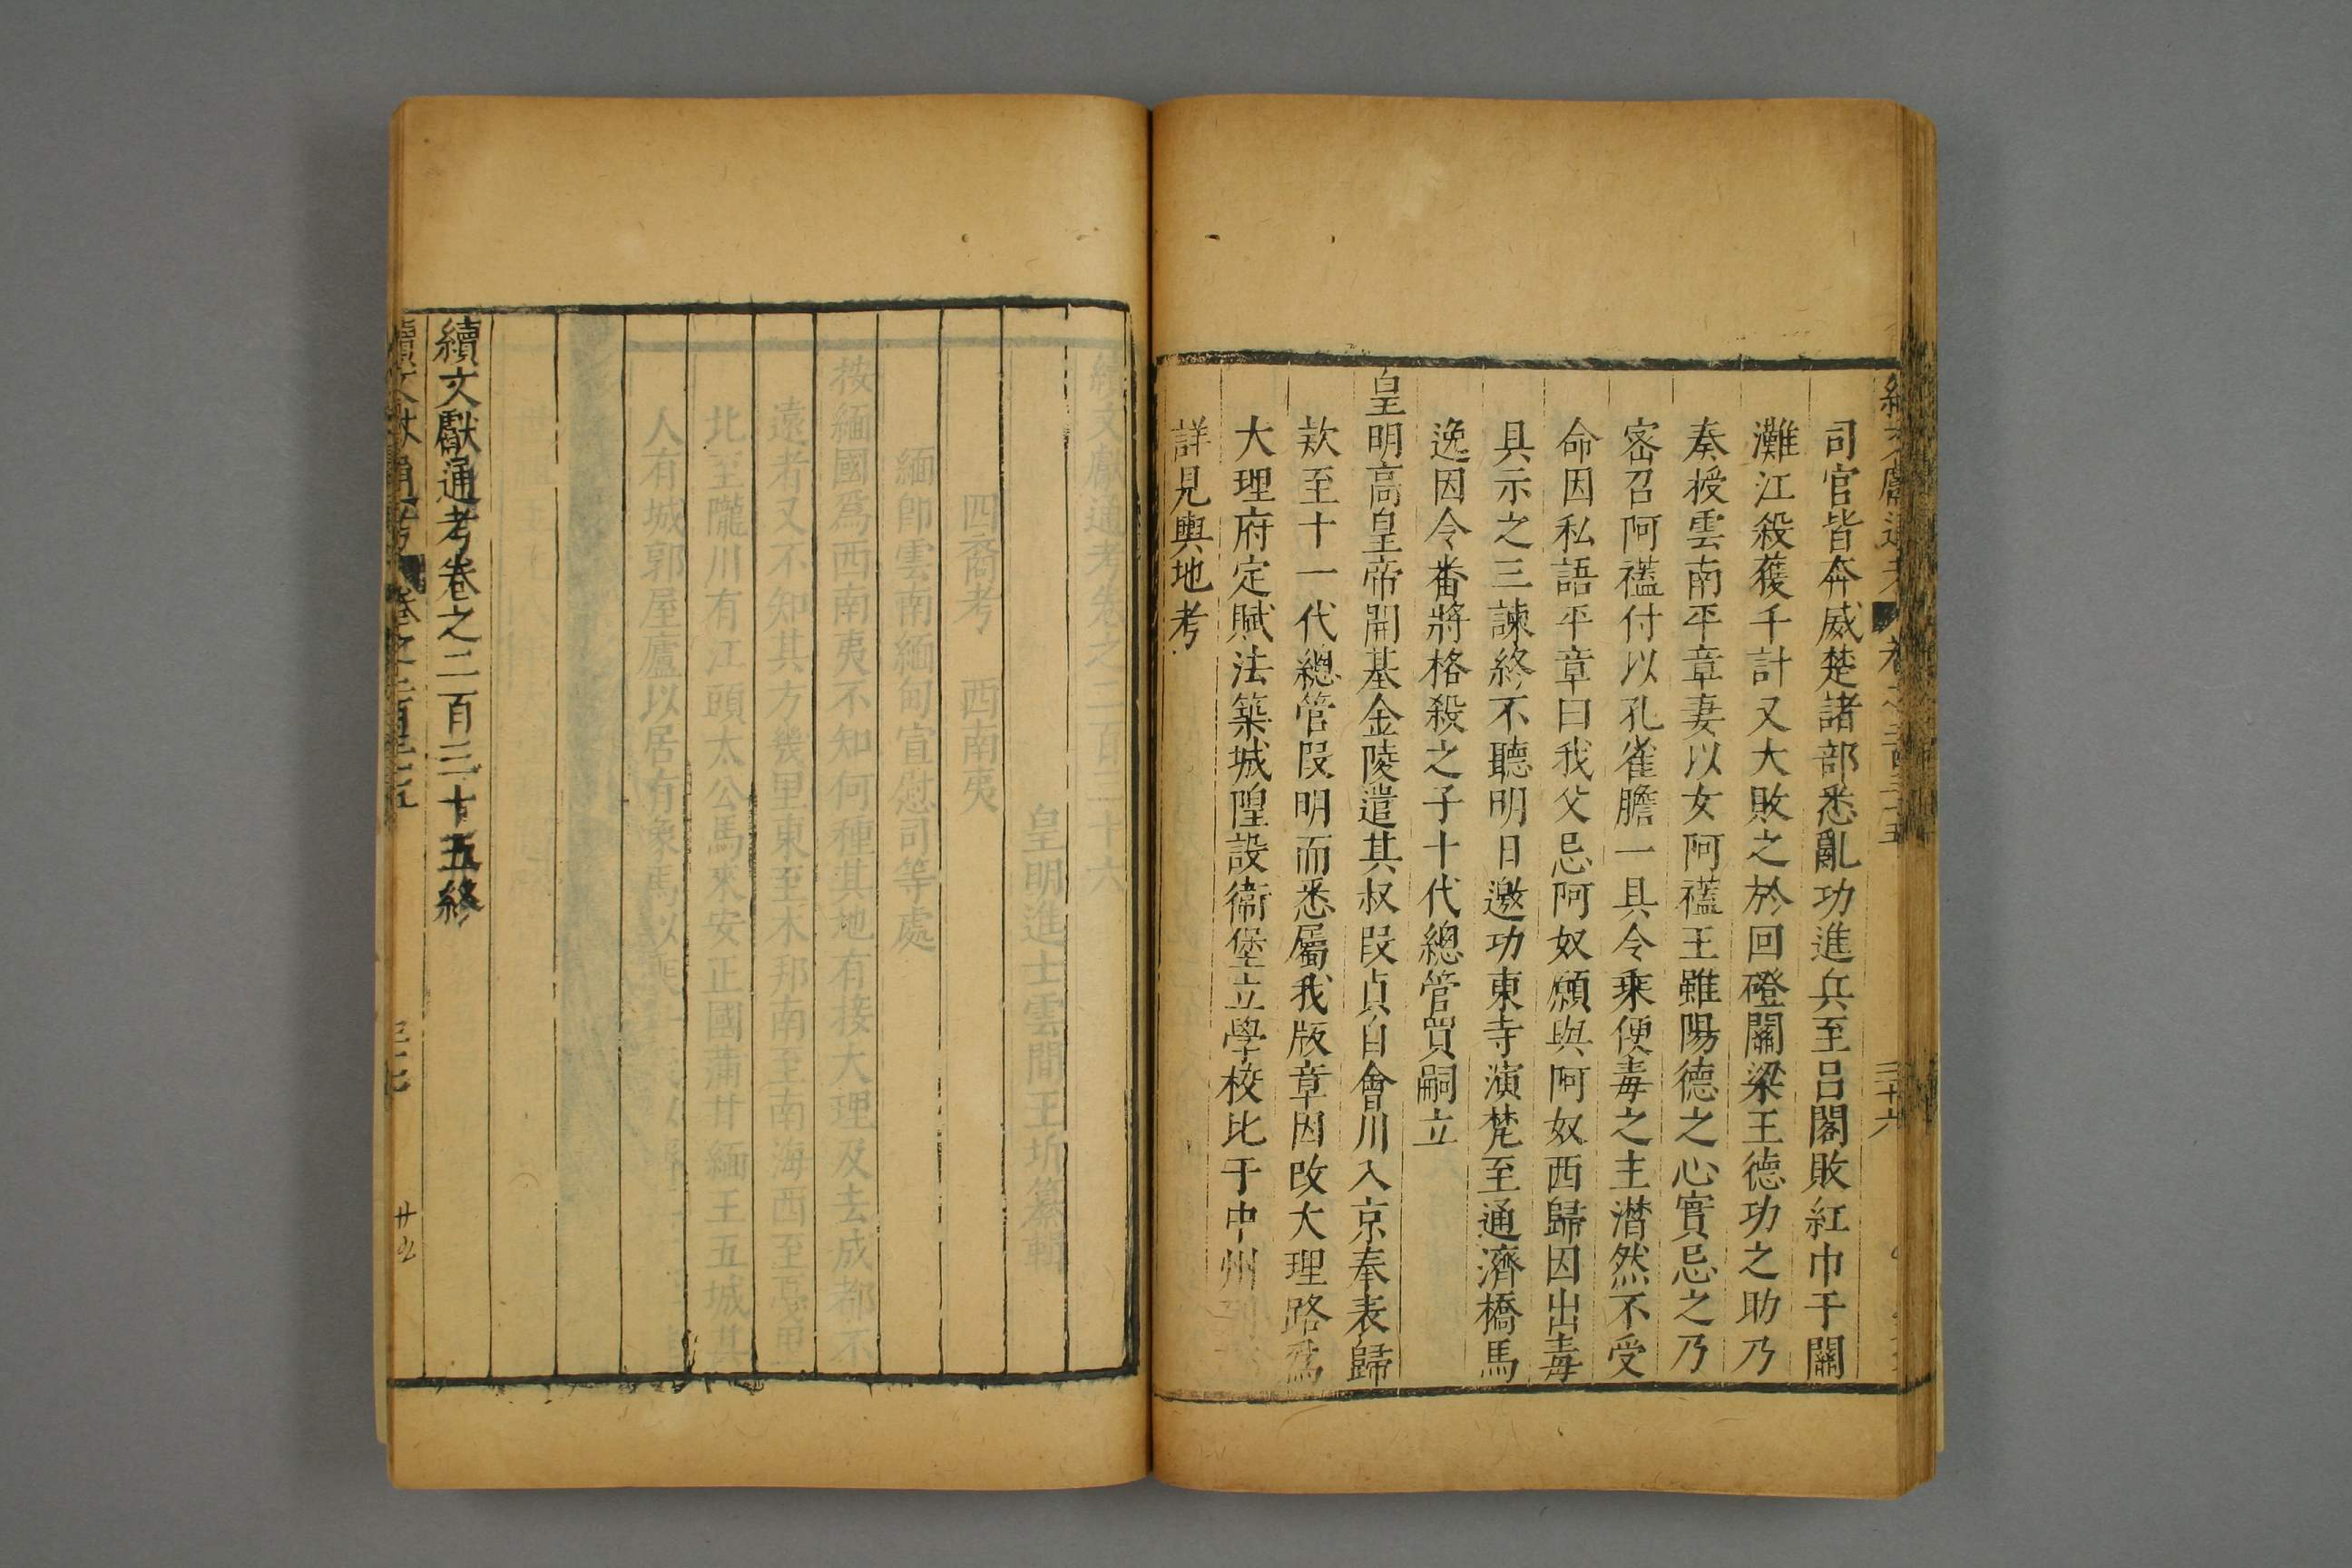 司官皆奔威楚諸部悉亂功進兵至呂閣敗紅巾于關
灘江殺獲千計又大敗之於回磴關梁王德功之助乃
奏授雲南平章妻以女阿𧛾王雖陽德之心實忌之乃
密召阿𧛾付以孔雀膽一具令乘便毒之主潛然不受
命因私語平章曰我父忌阿奴願與阿奴西歸因出毒
具示之三諫終不聽明日邀功東寺演梵至通濟橋馬
逸因令番將格殺之子十代總管寶嗣立
皇明高皇帝開基金陵遣其叔段貞自會川入京奉表歸
欵至十一代總管段明而悉屬我版章因改大理路爲
大理府定賦法築城隍設衞堡立學校比于中州
詳見輿地考
續文獻通考卷之二百三十五終
續文獻通考卷之二百三十六
皇明進士雲間王圻纂輯
四裔考 西南夷
緬卽雲南緬甸宣慰司等處
按緬國爲西南夷不知何種其地有接大理及去成都不
遠者又不知其方幾里東至木邦南至南海西至戞里
北至隴川有江頭太公馬來安正國蒲甘緬王五城其
人有城郭屋廬以居有象馬以